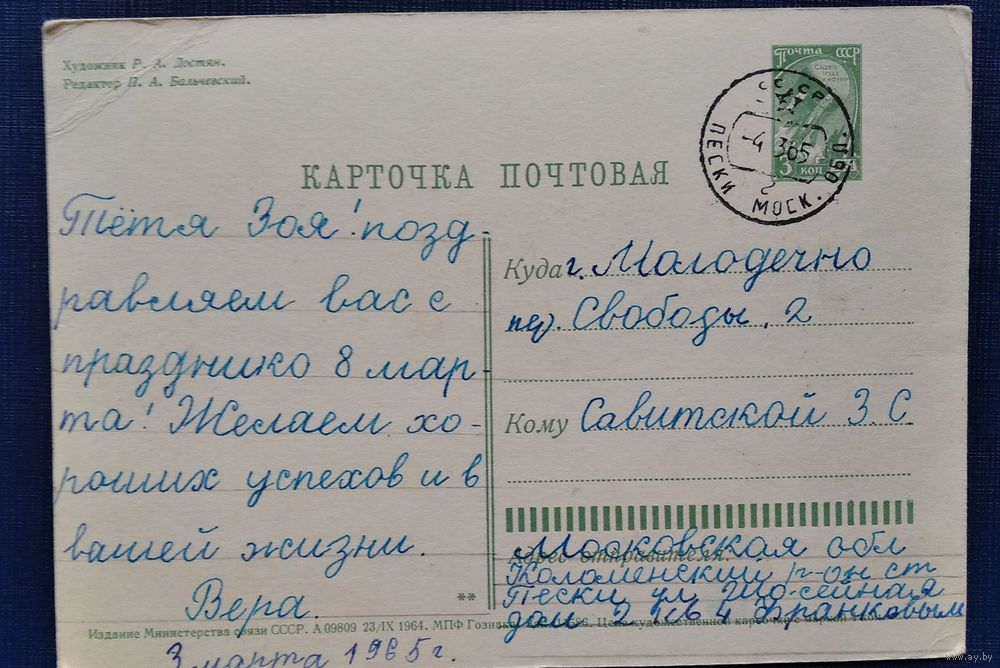 Художник Р. А. Достян.
Редактор П. А. Бальчевский.
Почта СССР
3 коп
СССР
-4 365
ПЕСКИ МОСК. ОБЛ.
2
КАРТОЧКА ПОЧТОВАЯ
Тётя Зоя! позд-
равляем вас с
праздnико 8 мар-
та! Желаем хо-
роших успехов и в
вашей жизни.
Вера.
3 марта 1965 г.
Куда г. Молодечно
пер. Свободы, 2
Кому Савитской З. С
Адрес отправителя:
Московская обл
Коломенский р-он ст
Пески ул Шосейная
дом 2 кв 4 Франковым
**
Издание Министерства связи СССР. А 09809 23/IX 1964. МПФ Гознака.
www.ay.by